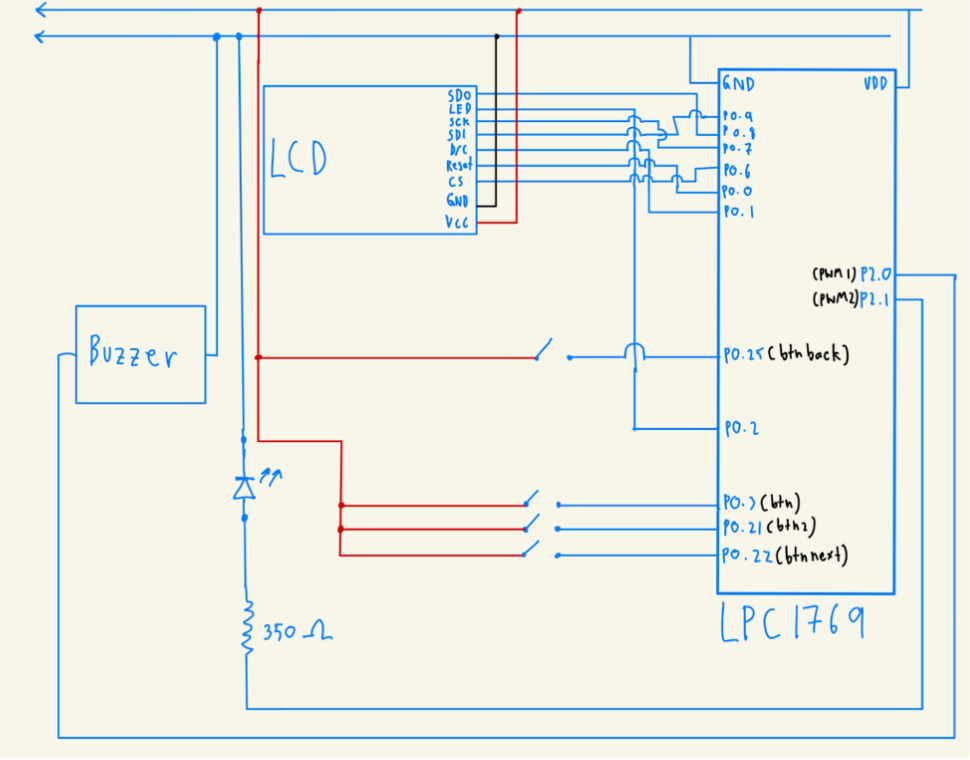 GND
VDD
SDO
LED
SCK
SDI
D/C
Reset
CS
GND
VCC
LCD
P0.9
P0.8
P0.7
P0.6
P0.0
P0.1
(PWM1) P2.0
(PWM2) P2.1
Buzzer
P0.25 (btnback)
P0.2
(btn)
P0.21 (btn2)
P0.22 (btnnext)
LPC1769
350 Ω